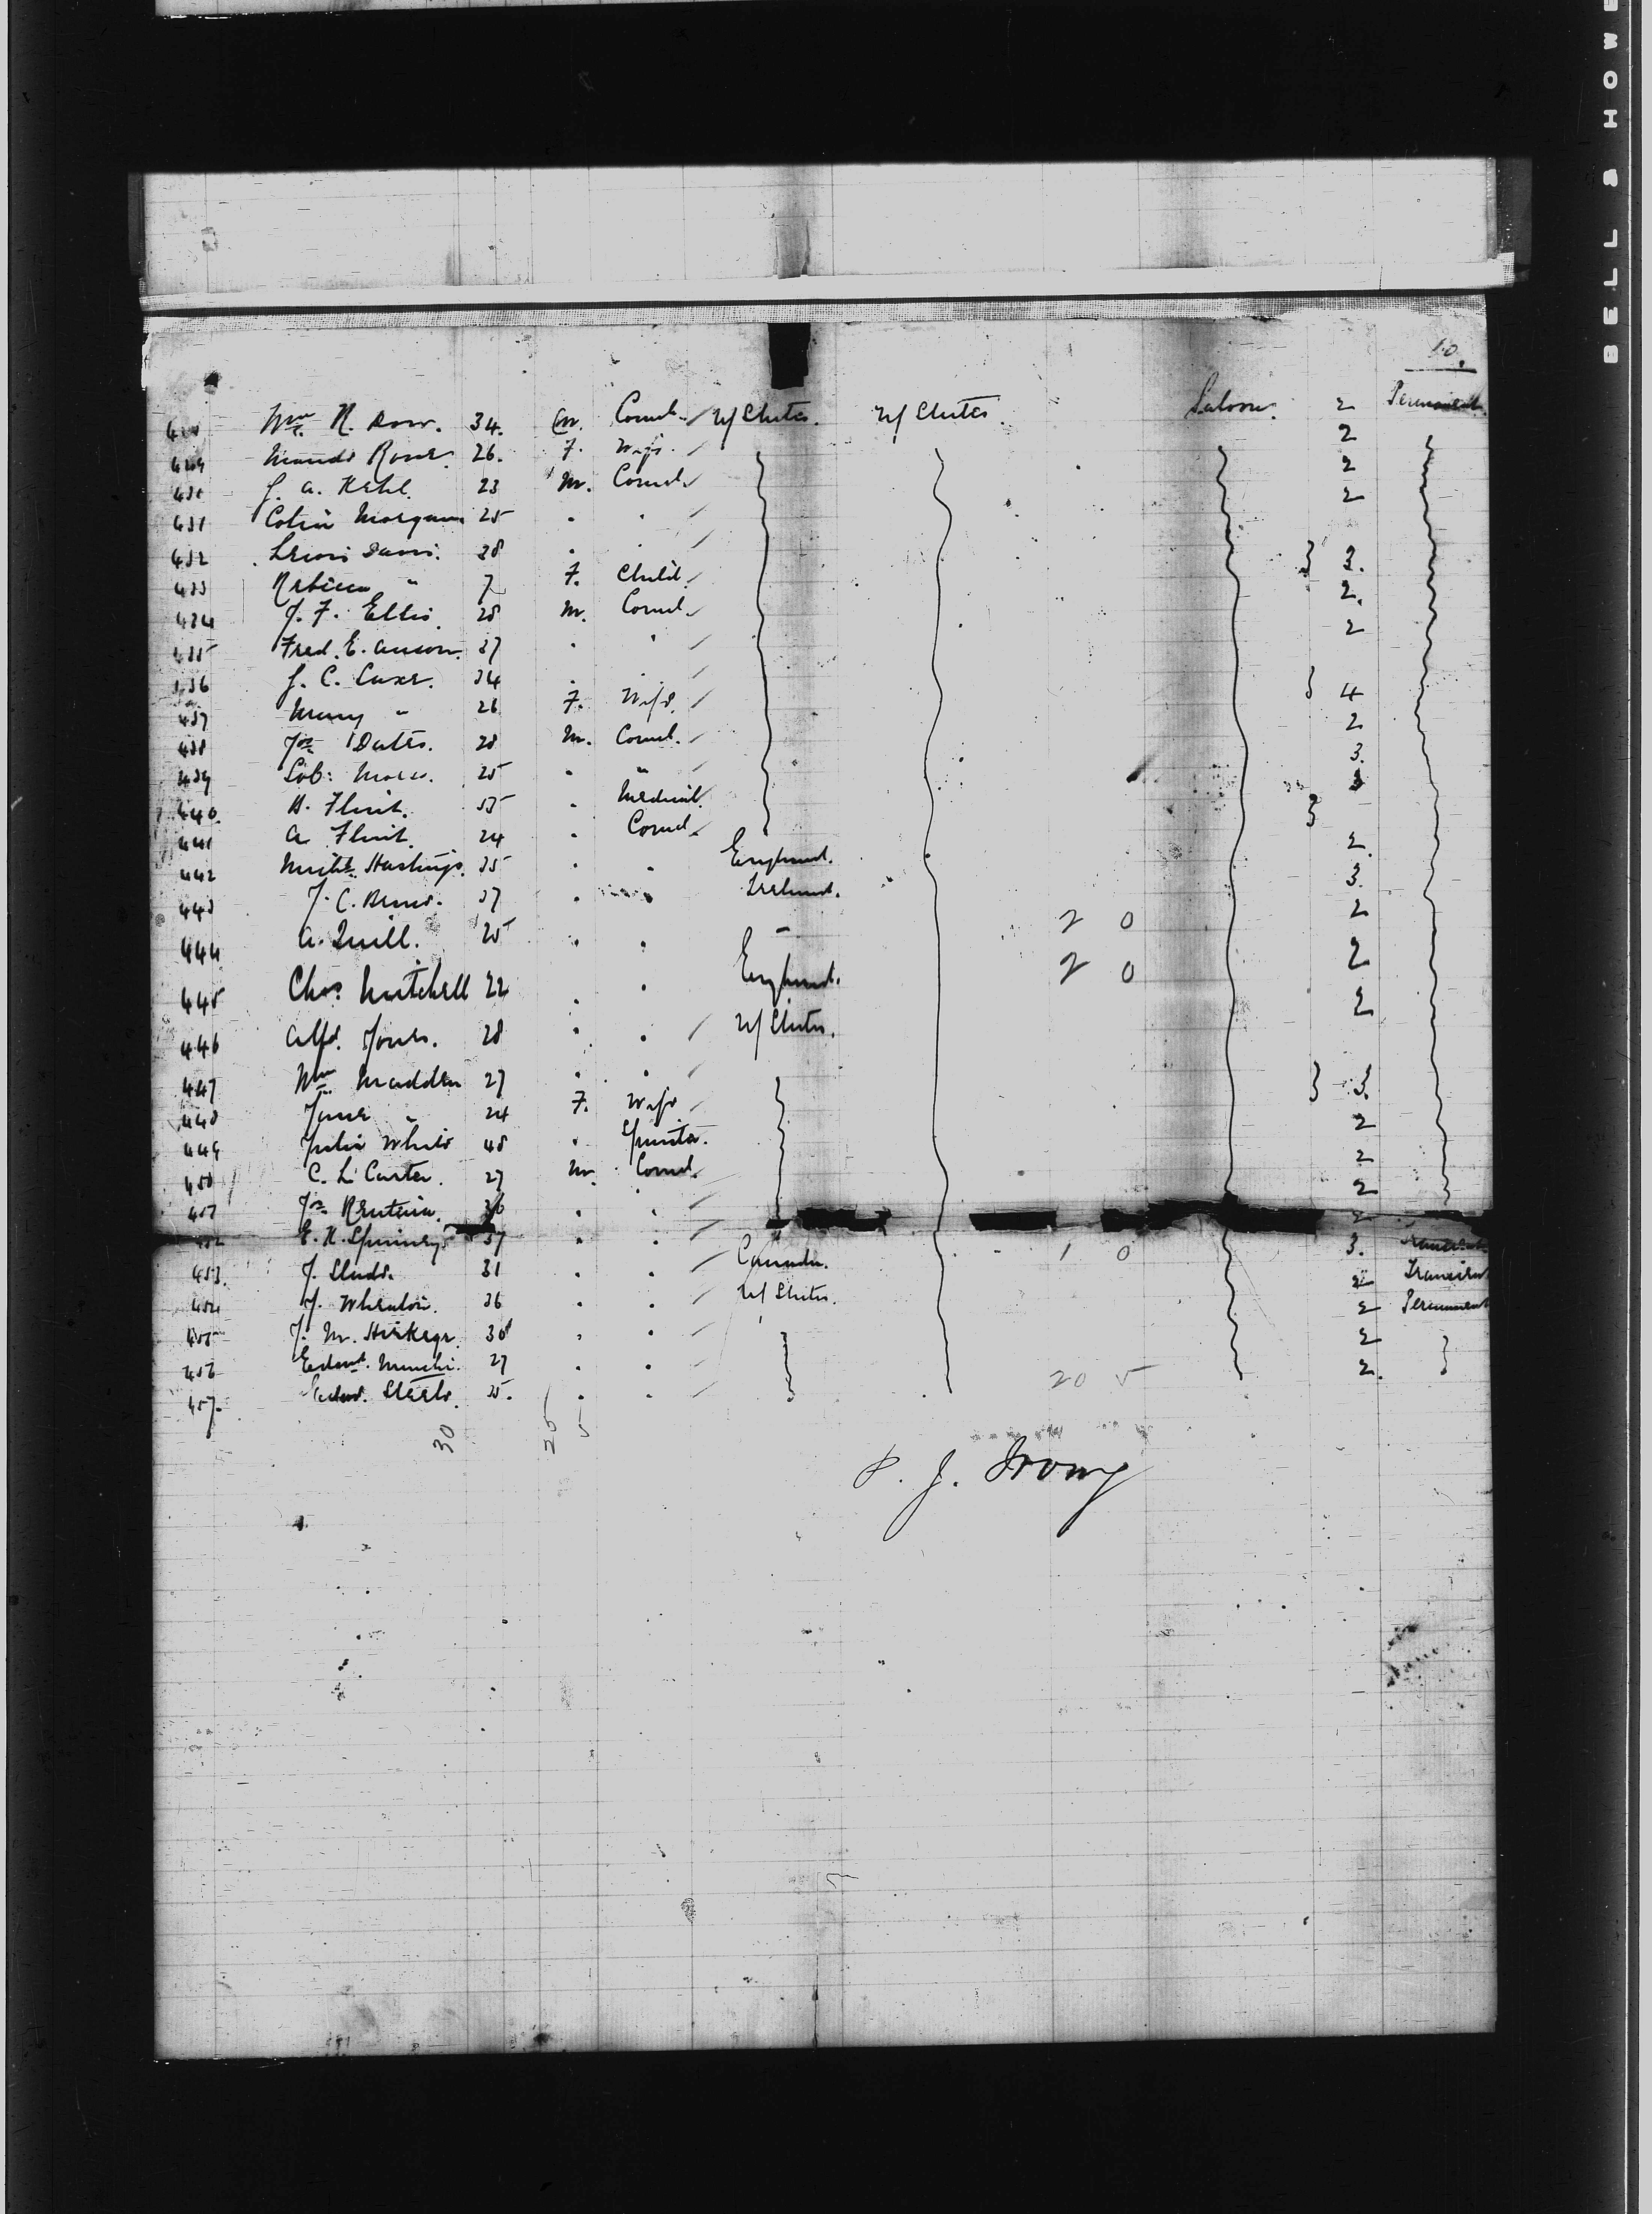 10.
Wm R. Row. 34. m. Coml. U/States. U/States. Saloon. 2 Permanent.
429 Maude Rowe. 26. F. Wife. 2
430 J. A. Kehl. 23 M. Coml. 2
431 Colin Morgan 25 " " 2
432 Lewis Davis. 38 " "
433 Rebecca " 7 F. Child. } 3.
434 J. F. Ellis. 28 M. Coml. 2.
435 Fred. E. Anson. 37 " " 2
436 J. C. Case. 34 " "
437 Mary " 26 F. Wife. } 4
438 Jos. Oates. 28 M. Coml. 2
439 Sol: Marx. 25 " " 3.
440. H. Flint. 55 " Medical. 3
441 A. Flint. 24 " Coml. }
442 Hastings. 35 " " England. 2.
443 J. C. 37 " " Ireland. 3.
444 A. Quill. 25 " " 2 0 2
445 Chas Mitchell 22 " " England. 2 0 2
446 Alfd. Jones. 28 " " U/States. 2
447 Wm Madden 27 " "
448 Jane " 24 F. Wife } 3.
449 Julia White 48 " Spinster. 2
450 C. L. Carter. 27 M. Coml. 2
451 Jos. Renteria. 36 " " 2
452 E. R. Spinney 37 " " 2
453. J. Slade. 31 " " Canada. 1 0 3. Transient
454 J. Wheaton. 36 " " U/States. 2 Transient
455 J. M. 30 " " 2 Permanent
456 Edwd. 27 " " 2
457. Edwd. Steele. 25. " " 2.
20 5
30 25 5
BELL & HOWE